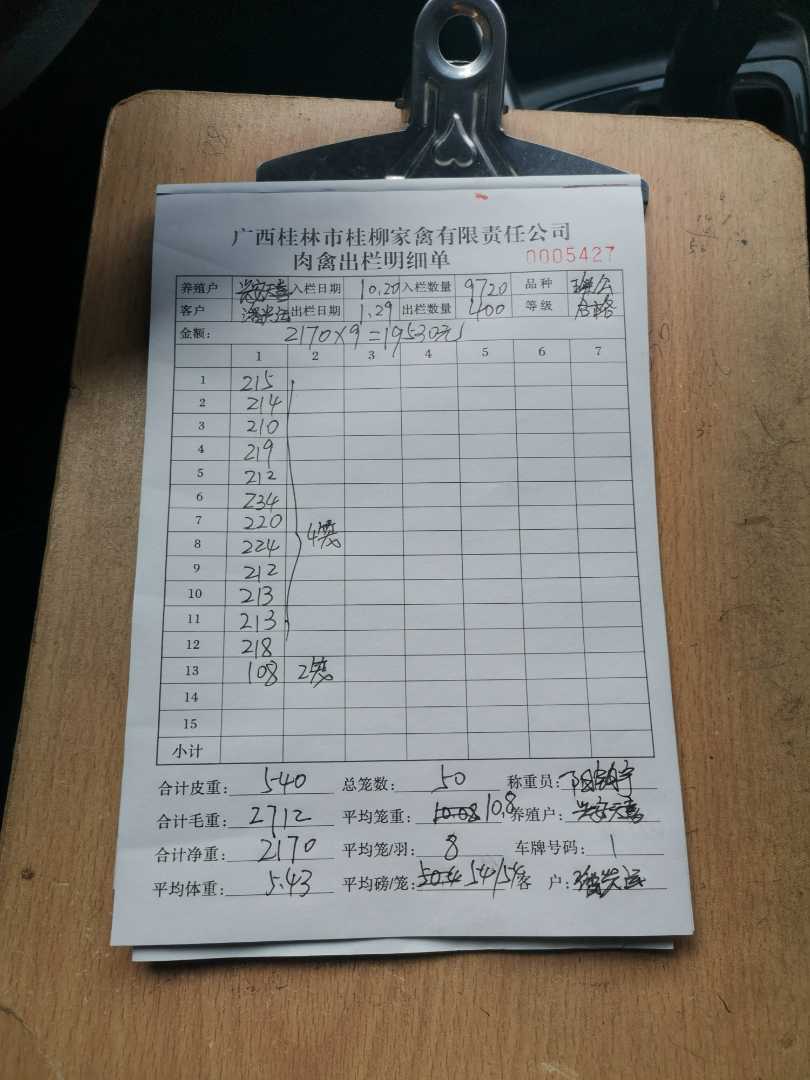 广西桂林市桂柳家禽有限责任公司
肉禽出栏明细单 0005427
养殖户 入栏日期 10.20 入栏数量 9720 品种
客户 出栏日期 1.29 出栏数量 400 等级 合格
金额: 2170×9=19530元
1 2 3 4 5 6 7
1 215
2 214
3 210
4 219
5 212
6 234
7 220
8 224 4笼
9 212
10 213
11 213
12 218
13 108 2笼
14
15
小计
合计皮重: 540 总笼数: 50 称重员:
合计毛重: 2712 平均笼重: 10.08 10.8 养殖户:
合计净重: 2170 平均笼/羽: 8 车牌号码: 1
平均体重: 5.43 平均磅/笼: 50.4 54/54 客 户: